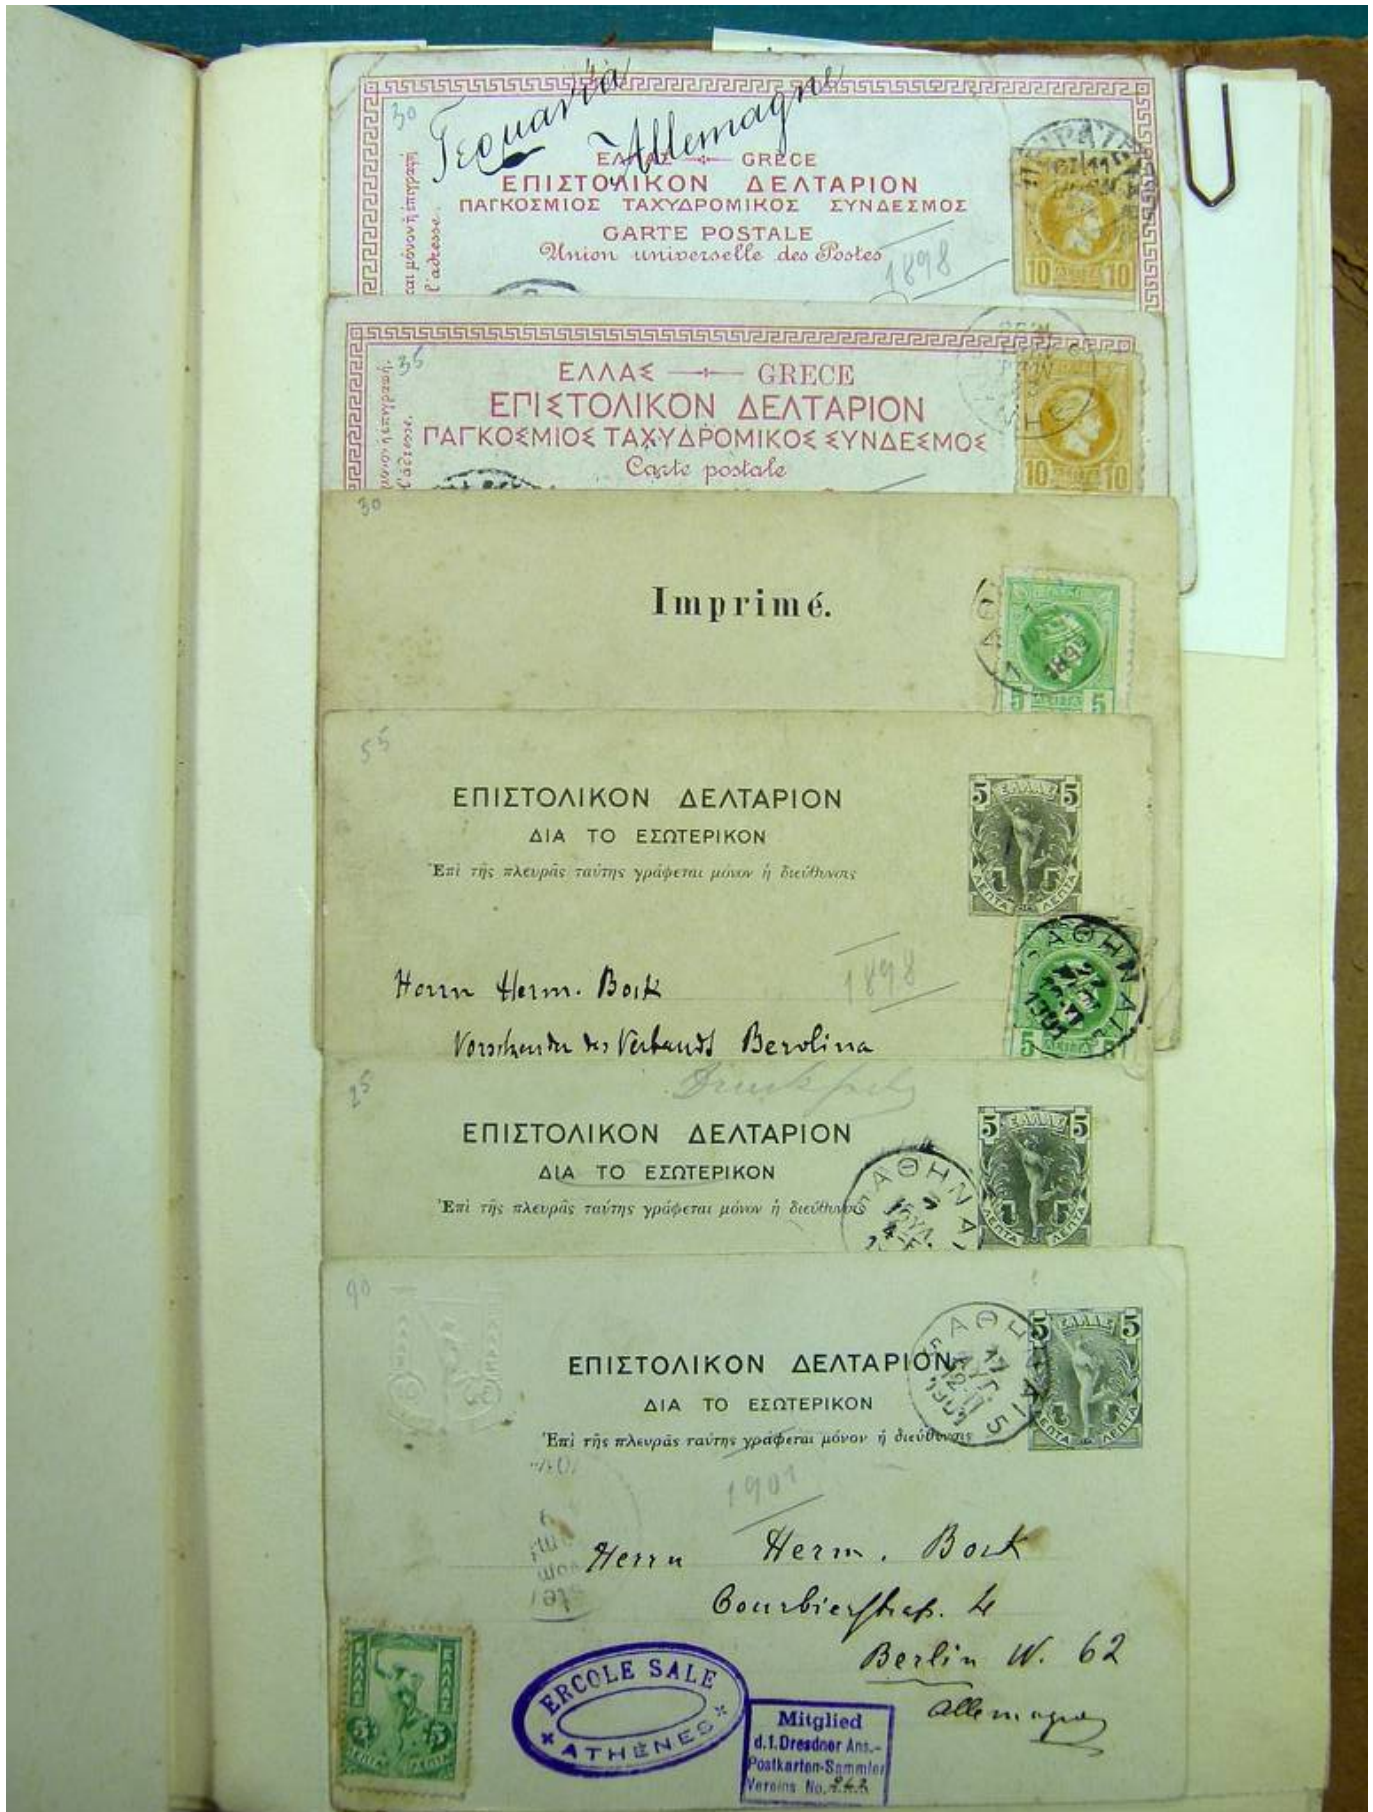 30
Γερμανία
Allemagne
ΕΛΛΑΣ GRECE
ΕΠΙΣΤΟΛΙΚΟΝ ΔΕΛΤΑΡΙΟΝ
ΠΑΓΚΟΣΜΙΟΣ ΤΑΧΥΔΡΟΜΙΚΟΣ ΣΥΝΔΕΣΜΟΣ
CARTE POSTALE
Union universelle des Postes
1898
10 10
ται μόνον ἡ ἐπιγραφή
l'adresse.
35
ΕΛΛΑΣ GRECE
ΕΠΙΣΤΟΛΙΚΟΝ ΔΕΛΤΑΡΙΟΝ
ΠΑΓΚΟΣΜΙΟΣ ΤΑΧΥΔΡΟΜΙΚΟΣ ΣΥΝΔΕΣΜΟΣ
Carte postale
10 10
30
Imprimé.
5 5
55
ΕΠΙΣΤΟΛΙΚΟΝ ΔΕΛΤΑΡΙΟΝ
ΔΙΑ ΤΟ ΕΣΩΤΕΡΙΚΟΝ
Ἐπὶ τῆς πλευρᾶς ταύτης γράφεται μόνον ἡ διεύθυνσις
5 ΕΛΛΑΣ 5
ΛΕΠΤΑ ΛΕΠΤΑ
1898
ΑΘΗΝΑΙ
Herrn Herm. Bork
Vorsitzender des Verbands Berolina
5 5
25
ΕΠΙΣΤΟΛΙΚΟΝ ΔΕΛΤΑΡΙΟΝ
ΔΙΑ ΤΟ ΕΣΩΤΕΡΙΚΟΝ
Ἐπὶ τῆς πλευρᾶς ταύτης γράφεται μόνον ἡ διεύθυνσις
5 ΕΛΛΑΣ 5
ΛΕΠΤΑ ΛΕΠΤΑ
ΑΘΗΝΑΙ
ΙΟΥΛ
90
ΕΠΙΣΤΟΛΙΚΟΝ ΔΕΛΤΑΡΙΟΝ
ΔΙΑ ΤΟ ΕΣΩΤΕΡΙΚΟΝ
Ἐπὶ τῆς πλευρᾶς ταύτης γράφεται μόνον ἡ διεύθυνσις
5 ΕΛΛΑΣ 5
ΛΕΠΤΑ ΛΕΠΤΑ
ΑΘΗΝΑΙ 5
17
ΑΥΓ
1901
1901
Herrn Herm. Bork
Courbierstraße. 4
Berlin W. 62
Allemagne
ΕΛΛΑΣ ΕΛΛΑΣ
5 5
ΛΕΠΤΑ ΛΕΠΤΑ
ERCOLE SALE
ATHÈNES
Mitglied
d. I. Dresdner Ans.-
Postkarten-Sammler
Vereins No.